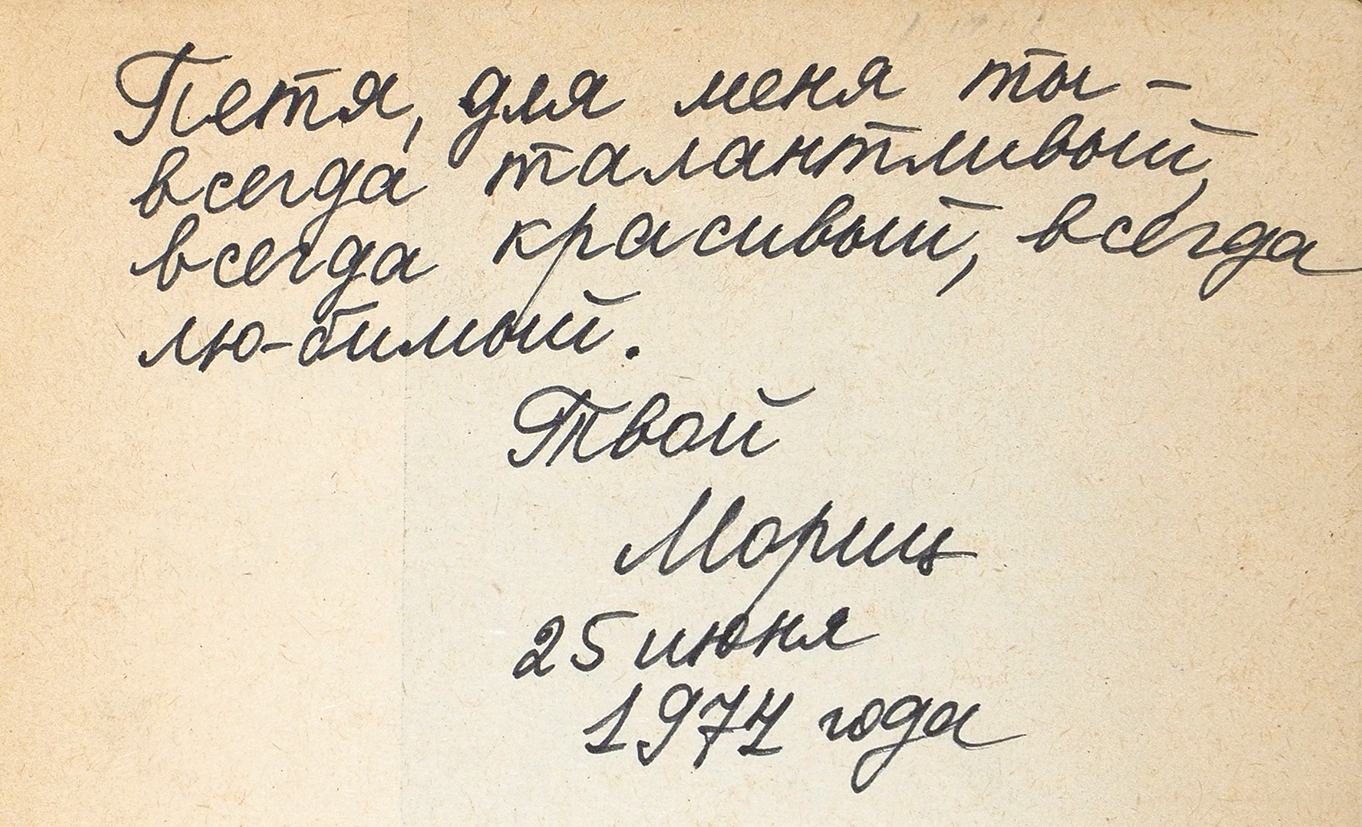 Петя, для меня ты –
всегда талантливый,
всегда красивый, всегда
лю-бимый.
Твой
Мориц
25 июня
1974 года